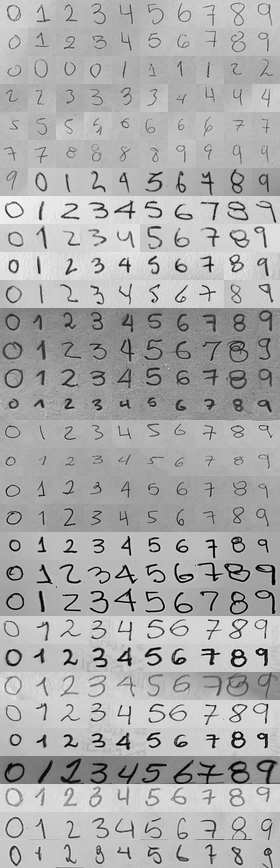 0 1 2 3 4 5 6 7 8 9
0 1 2 3 4 5 6 7 8 9
0 0 0 0 1 1 1 1 2 2
2 2 3 3 3 3 4 4 4 4
5 5 5 5 6 6 6 6 7 7
7 7 8 8 8 8 9 9 9 9
9 0 1 2 4 5 6 7 8 9
0 1 2 3 4 5 6 7 8 9
0 1 2 3 4 5 6 7 8 9
0 1 2 3 4 5 6 7 8 9
0 1 2 3 4 5 6 7 8 9
0 1 2 3 4 5 6 7 8 9
0 1 2 3 4 5 6 7 8 9
0 1 2 3 4 5 6 7 8 9
0 1 2 3 4 5 6 7 8 9
0 1 2 3 4 5 6 7 8 9
0 1 2 3 4 5 6 7 8 9
0 1 2 3 4 5 6 7 8 9
0 1 2 3 4 5 6 7 8 9
0 1 2 3 4 5 6 7 8 9
0 1 2 3 4 5 6 7 8 9
0 1 2 3 4 5 6 7 8 9
0 1 2 3 4 5 6 7 8 9
0 1 2 3 4 5 6 7 8 9
0 1 2 3 4 5 6 7 8 9
0 1 2 3 4 5 6 7 8 9
0 1 2 3 4 5 6 7 8 9
0 1 2 3 4 5 6 7 8 9
0 1 2 3 4 5 6 7 8 9
0 1 2 3 4 5 6 7 8 9
0 1 2 3 4 5 6 7 8 9